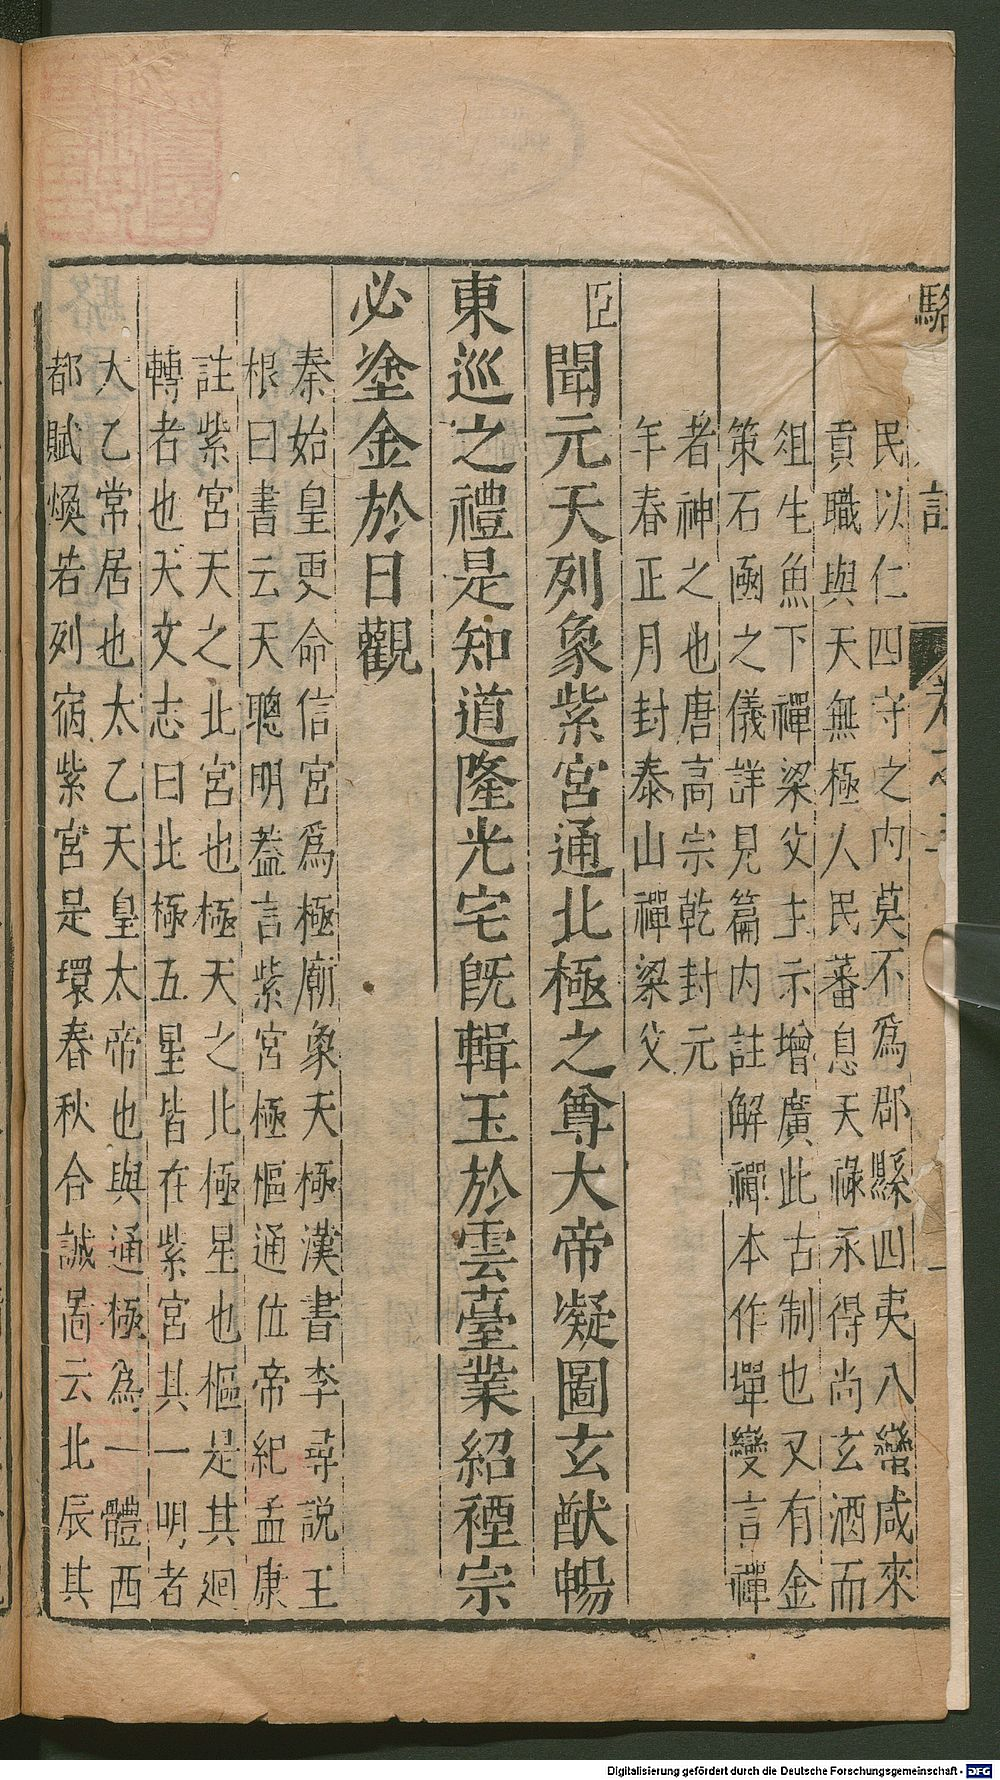 駱
註
民以仁四守之内莫不爲郡縣四夷八蠻咸來
貢職與天無極人民蕃息天祿永得尚玄酒而
俎生魚下禪梁父主示增廣此古制也又有金
策石函之儀詳見篇内註解禪本作墠變言禪
者神之也唐高宗乾封元
年春正月封泰山禪梁父
臣聞元天列象紫宮通北極之尊大帝凝圖玄猷暢
東巡之禮是知道隆光宅旣輯玉於雲臺業紹禋宗
必塗金於日觀
秦始皇更命信宮爲極廟象天極漢書李尋說王
根曰書云天聰明蓋言紫宮極樞通位帝紀孟康
註紫宮天之北宮也極天之北極星也樞是其廻
轉者也天文志曰北極五星皆在紫宮其一明者
大乙常居也太乙天皇太帝也與通極爲一體西
都賦煥若列宿紫宮是環春秋合誠啚云北辰其
Digitalisierung gefördert durch die Deutsche Forschungsgemeinschaft - DFG